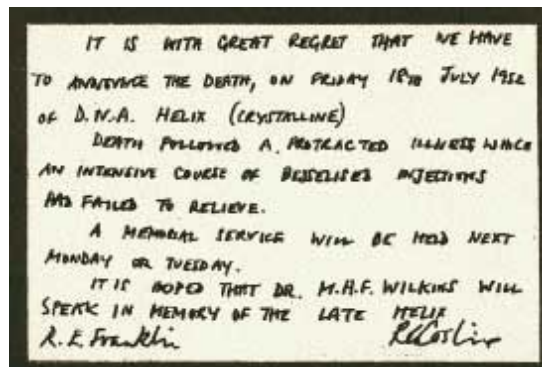 IT IS WITH GREAT REGRET THAT WE HAVE
TO ANNOUNCE THE DEATH, ON FRIDAY 18TH JULY 1952
OF D.N.A. HELIX (CRYSTALLINE)
DEATH FOLLOWED A PROTRACTED ILLNESS WHICH
AN INTENSIVE COURSE OF BESSELISED INJECTIONS
HAD FAILED TO RELIEVE.
A MEMORIAL SERVICE WILL BE HELD NEXT
MONDAY OR TUESDAY.
IT IS HOPED THAT DR. M.H.F. WILKINS WILL
SPEAK IN MEMORY OF THE LATE HELIX
R. E. Franklin R.G. Gosling